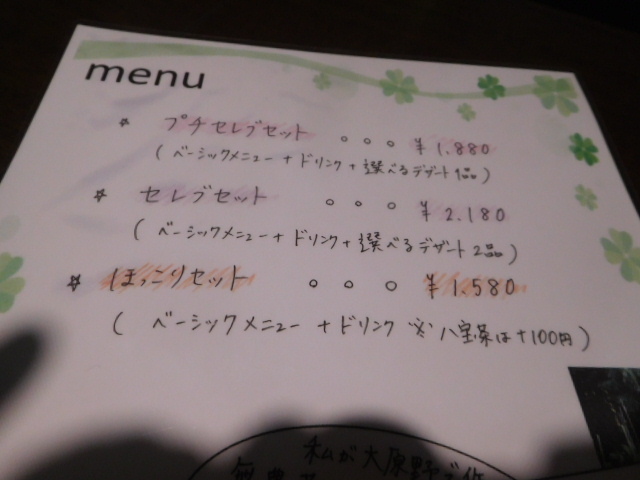 menu
☆ プチセレブセット 。。。 ¥1.880
(ベーシックメニュー+ドリンク+選べるデザート1品)
☆ セレブセット 。。。 ¥2.180
(ベーシックメニュー+ドリンク+選べるデザート2品)
☆ ほっこりセット 。。。 ¥1.580
(ベーシックメニュー+ドリンク ※八宝茶は+100円)
私が大原野で作
無農